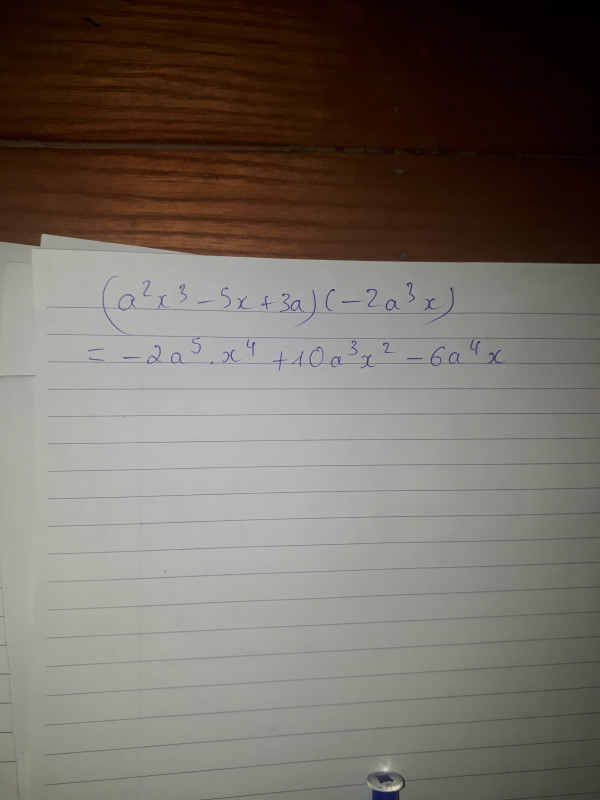 (a²x³ - 5x + 3a) (-2a³x)
= -2a⁵ . x⁴ + 10a³x² - 6a⁴x